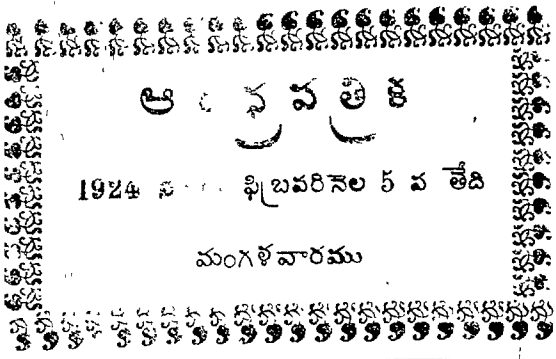 ఆంధ్రపత్రిక
1924 ఫిబ్రవరినెల 5 వ తేది
మంగళవారము